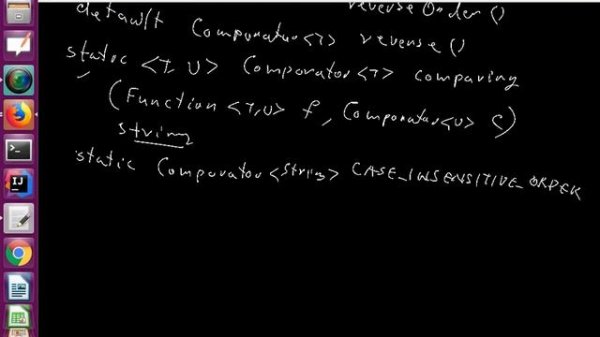 reverseOrder()
default Comparator<T> reverse()
static <T, U> Comparator<T> comparing
(Function <T,U> f, Comparator<U> c)
string
static Comparator<String> CASE_INSENSITIVE_ORDER